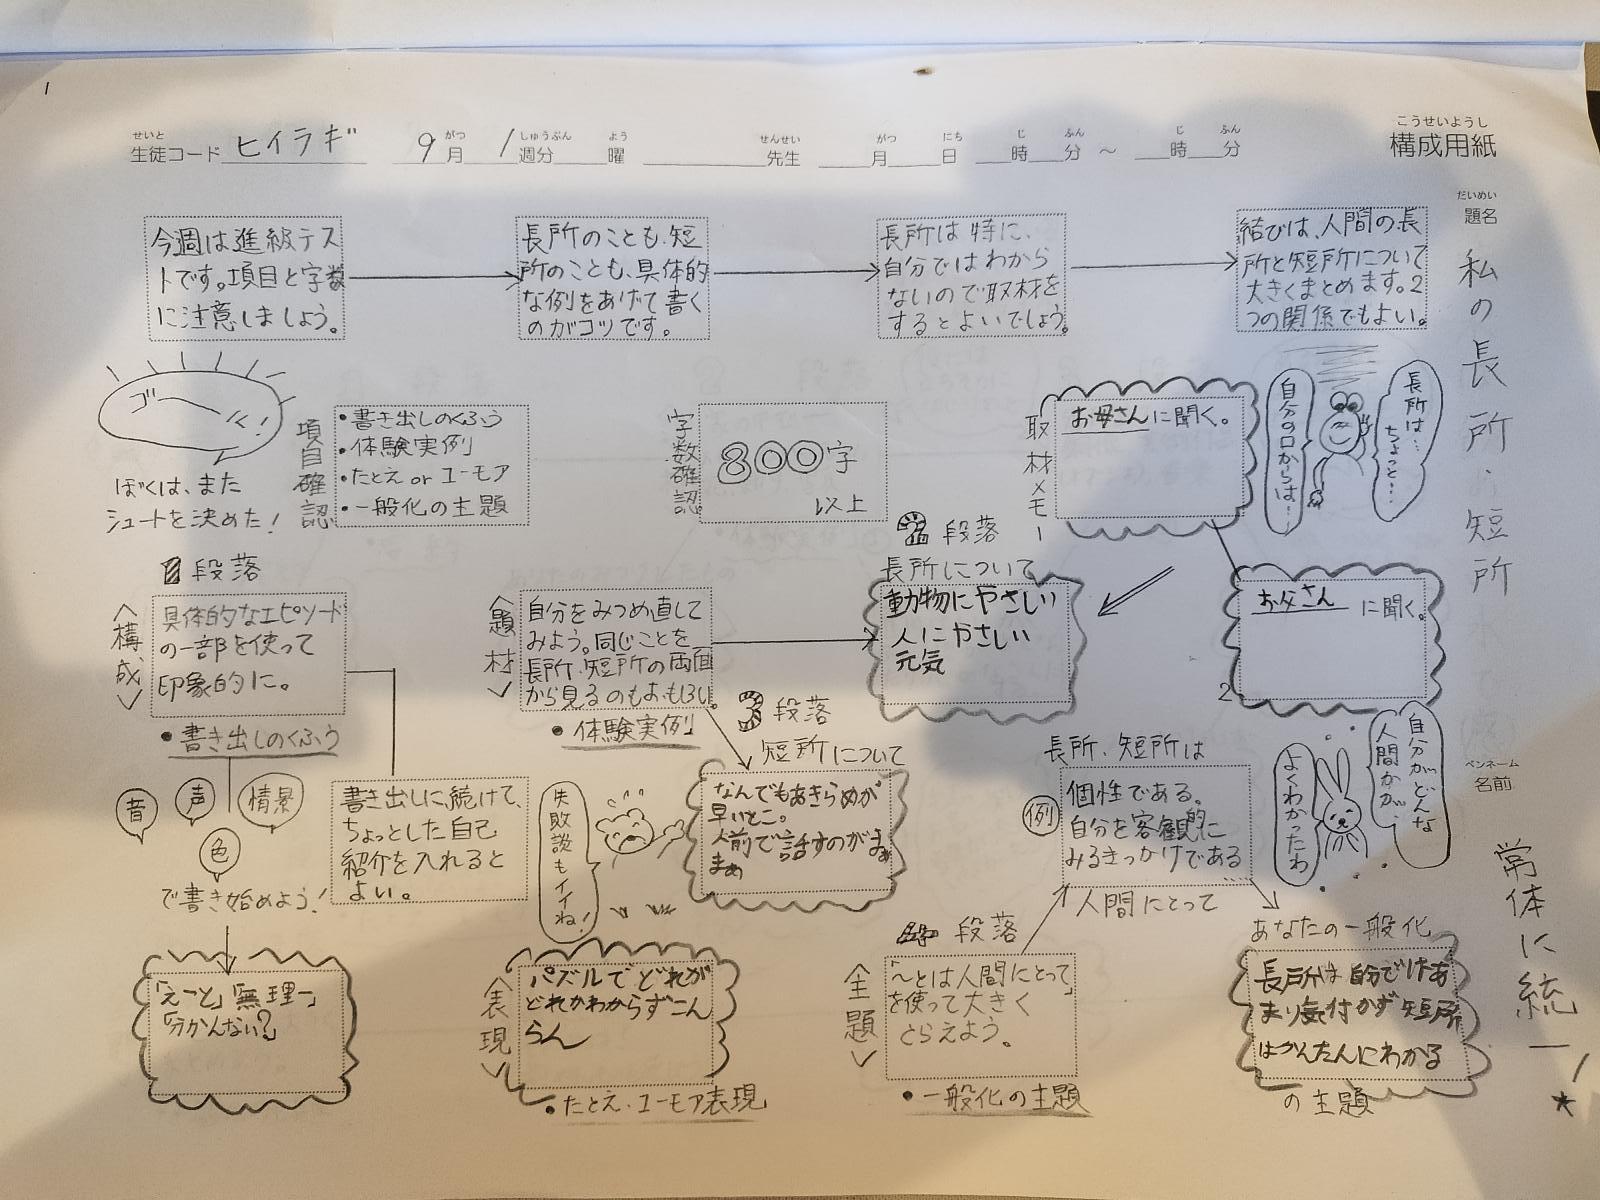 1
せいと がつ しゅうぶん よう せんせい がつ にち じ ふん じ ふん
生徒コード ヒイラギ 9月 1週分 曜 先生 月 日 時 分 ～ 時 分
こうせいようし
構成用紙
だいめい
題名
私の長所・短所
ペンネーム
名前
常体に統一！
★
今週は進級テス
トです。項目と字数
に注意しましょう。
長所のことも、短
所のことも、具体的
な例をあげて書く
のがコツです。
長所は特に、
自分ではわから
ないので取材を
するとよいでしょう。
結びは、人間の長
所と短所について
大きくまとめます。2
つの関係でもよい。
ゴ〜ル！
ぼくは、また
シュートを決めた！
項目確認
・書き出しのくふう
・体験実例
・たとえ or ユーモア
・一般化の主題
字数確認
800字
以上
取材メモー
お母さんに聞く。
自分の口からは…
長所は…
ちょっと…
お父さん に聞く。
2
自分が、どんな
人間かが、
よくわかったわ
1段落
＜構成＞
具体的なエピソード
の一部を使って
印象的に。
・書き出しのくふう
音
声
情景
色
で書き始めよう！
「えーと」「無理ー」
「分かんない？」
書き出しに、続けて、
ちょっとした自己
紹介を入れると
よい。
＜題材＞
自分をみつめ直して
みよう。同じことを
長所・短所の両面
から見るのもおもしろい。
・体験実例
2段落
長所について
動物にやさしい
人にやさしい
元気
3段落
短所について
なんでもあきらめが
早いとこ。
人前で話すのがまぁ
まぁ
失敗談もイイね！
＜表現＞
パズルでどれが
どれかわからずこん
らん
・たとえ・ユーモア表現
4段落
＜主題＞
「〜とは人間にとって」
を使って大きく
とらえよう。
・一般化の主題
長所・短所は
例
個性である。
自分を客観的に
みるきっかけである
……
人間にとって
あなたの一般化
長所は自分ではあ
まり気付かず短所
はかんたんにわかる
の主題